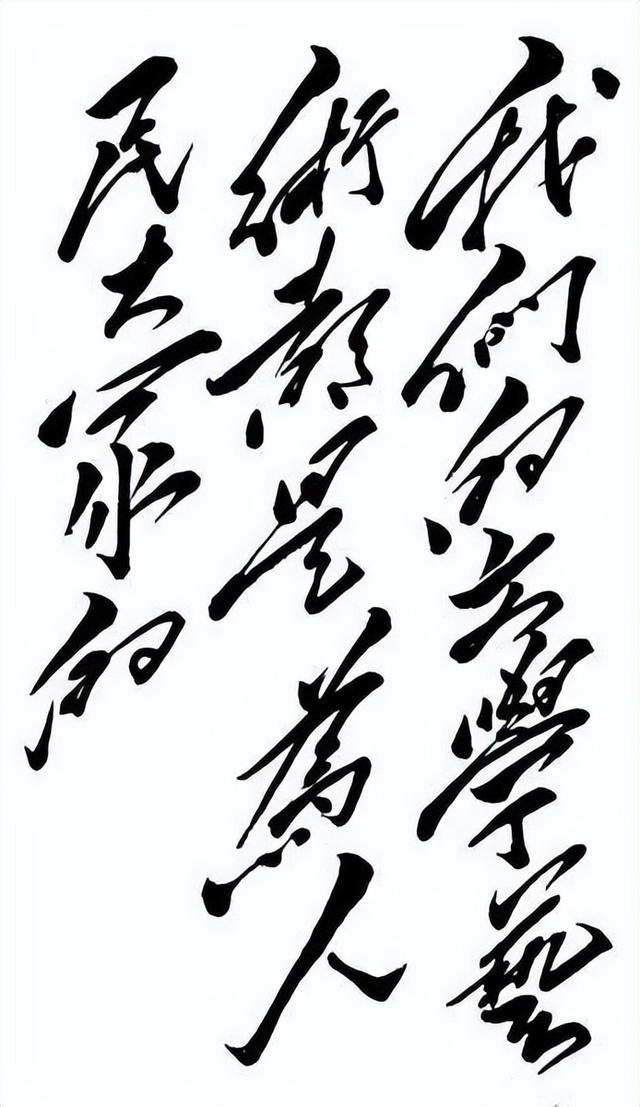 我們的文學藝
術都是為人
民大眾的